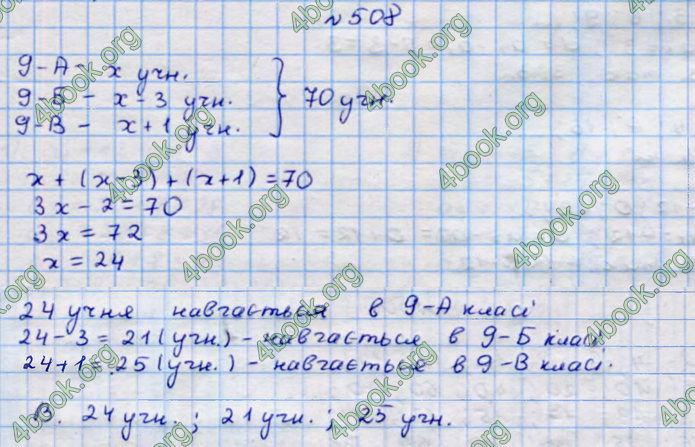 № 508
9-А - х учн.
9-Б - х - 3 учн. } 70 учн.
9-В - х + 1 учн.
х + (х - 3) + (х + 1) = 70
3х - 2 = 70
3х = 72
х = 24
24 учня навчається в 9-А класі
24 - 3 = 21 (учн.) - навчається в 9-Б класі
24 + 1 = 25 (учн.) - навчається в 9-В класі.
В. 24 учн. ; 21 учн. ; 25 учн.
4book.org